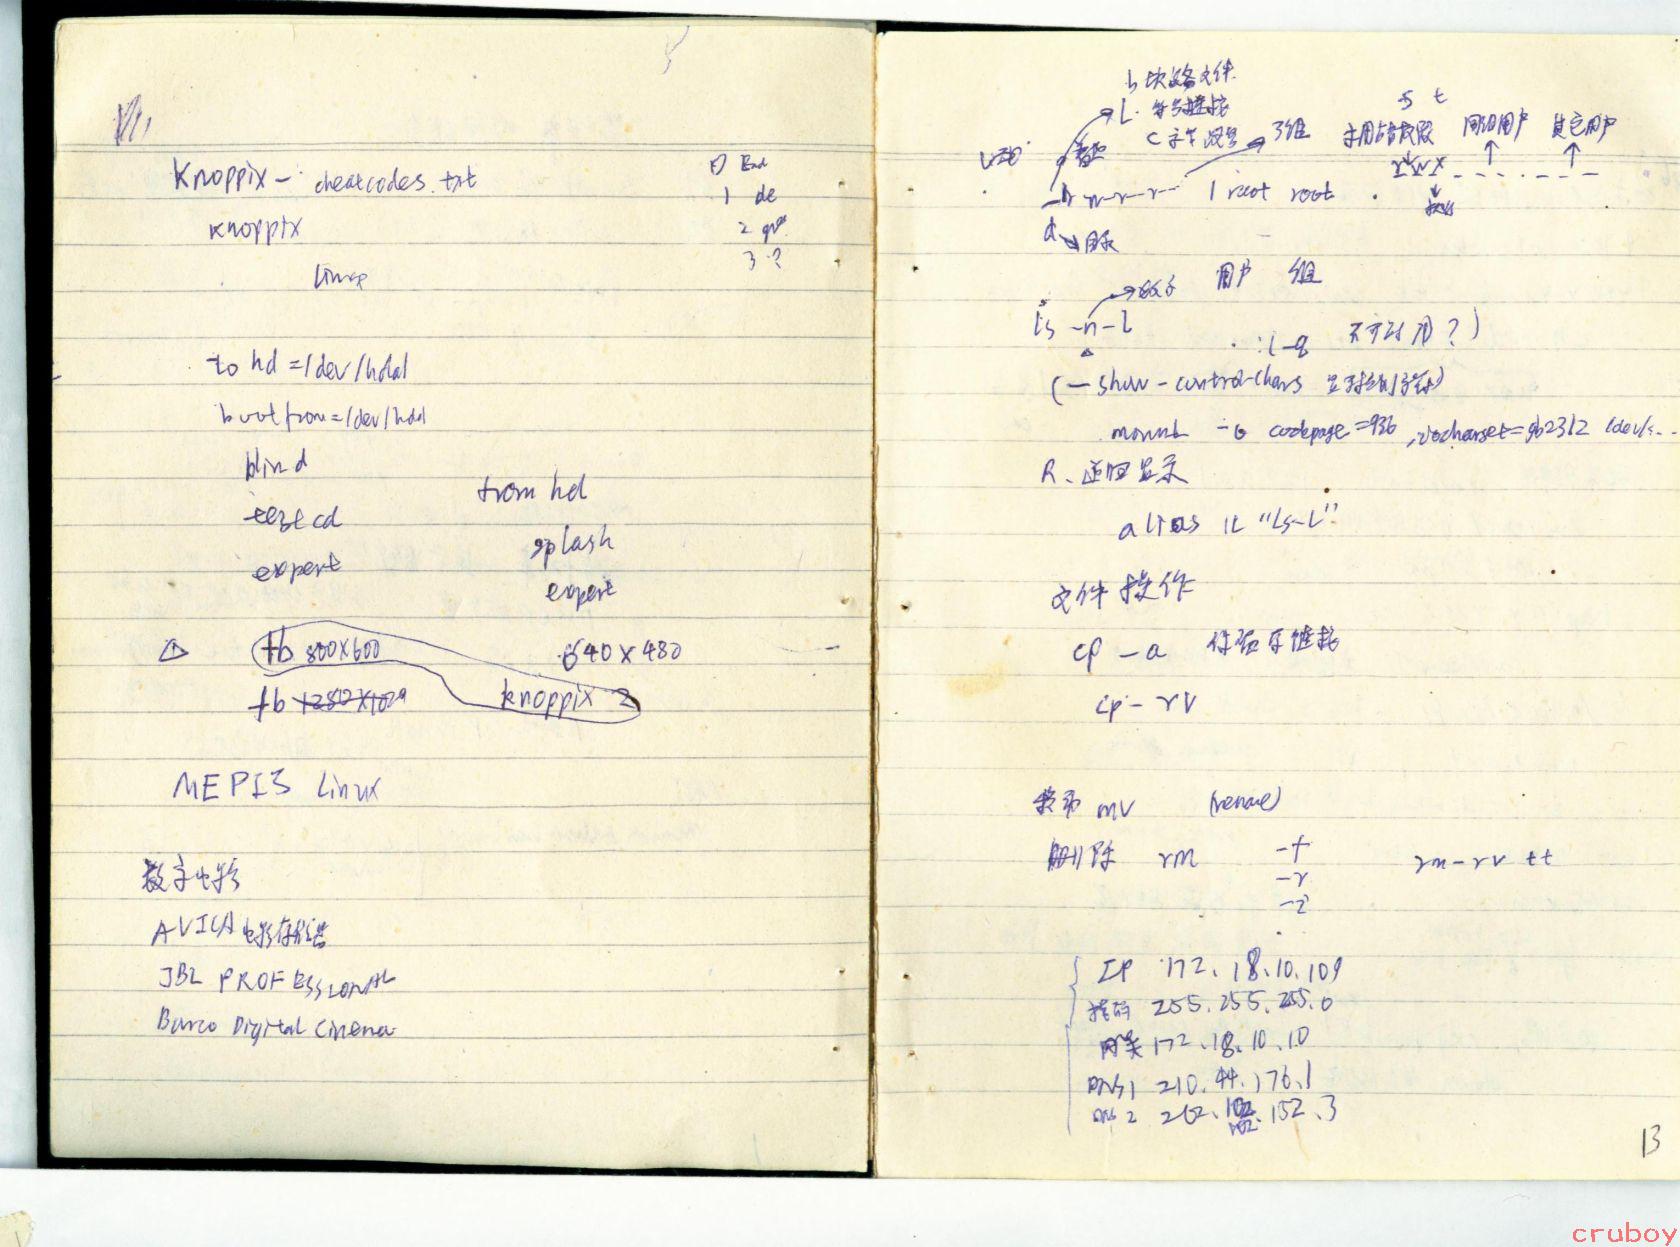 Knoppix - cheatcodes.txt
knoppix
1 de
2
3 ?
to hd =/dev/hda1
bootfrom=/dev/hda1
blind
testcd
expert
from hd
splash
expert
fb 800x600
640 x 480
fb 1280x1024
knoppix 2
MEPIS Linux
数字电影
AVICA 电影
JBL PROFESSIONAL
Barco Digital Cinema
b 块设备文件
l. 符号链接
c 字节设备
s t
子组
同组用户
其它用户
rwx
1 root root
d 目录
数字
用户 组
ls -n -l
(-show-control-chars 显示控制字符)
codepage=936 ,iocharset=gb2312 /dev/s...
R、递归显示
alias ll "ls-l"
文件操作
cp -a
cp -rv
mv (rename)
删除 rm -f
-r
-i
rm-rv tt
IP 172.18.10.109
掩码 255.255.255.0
网关 172.18.10.10
DNS1 210.44.176.1
DNS 2 202.102.152.3
13
cruboy